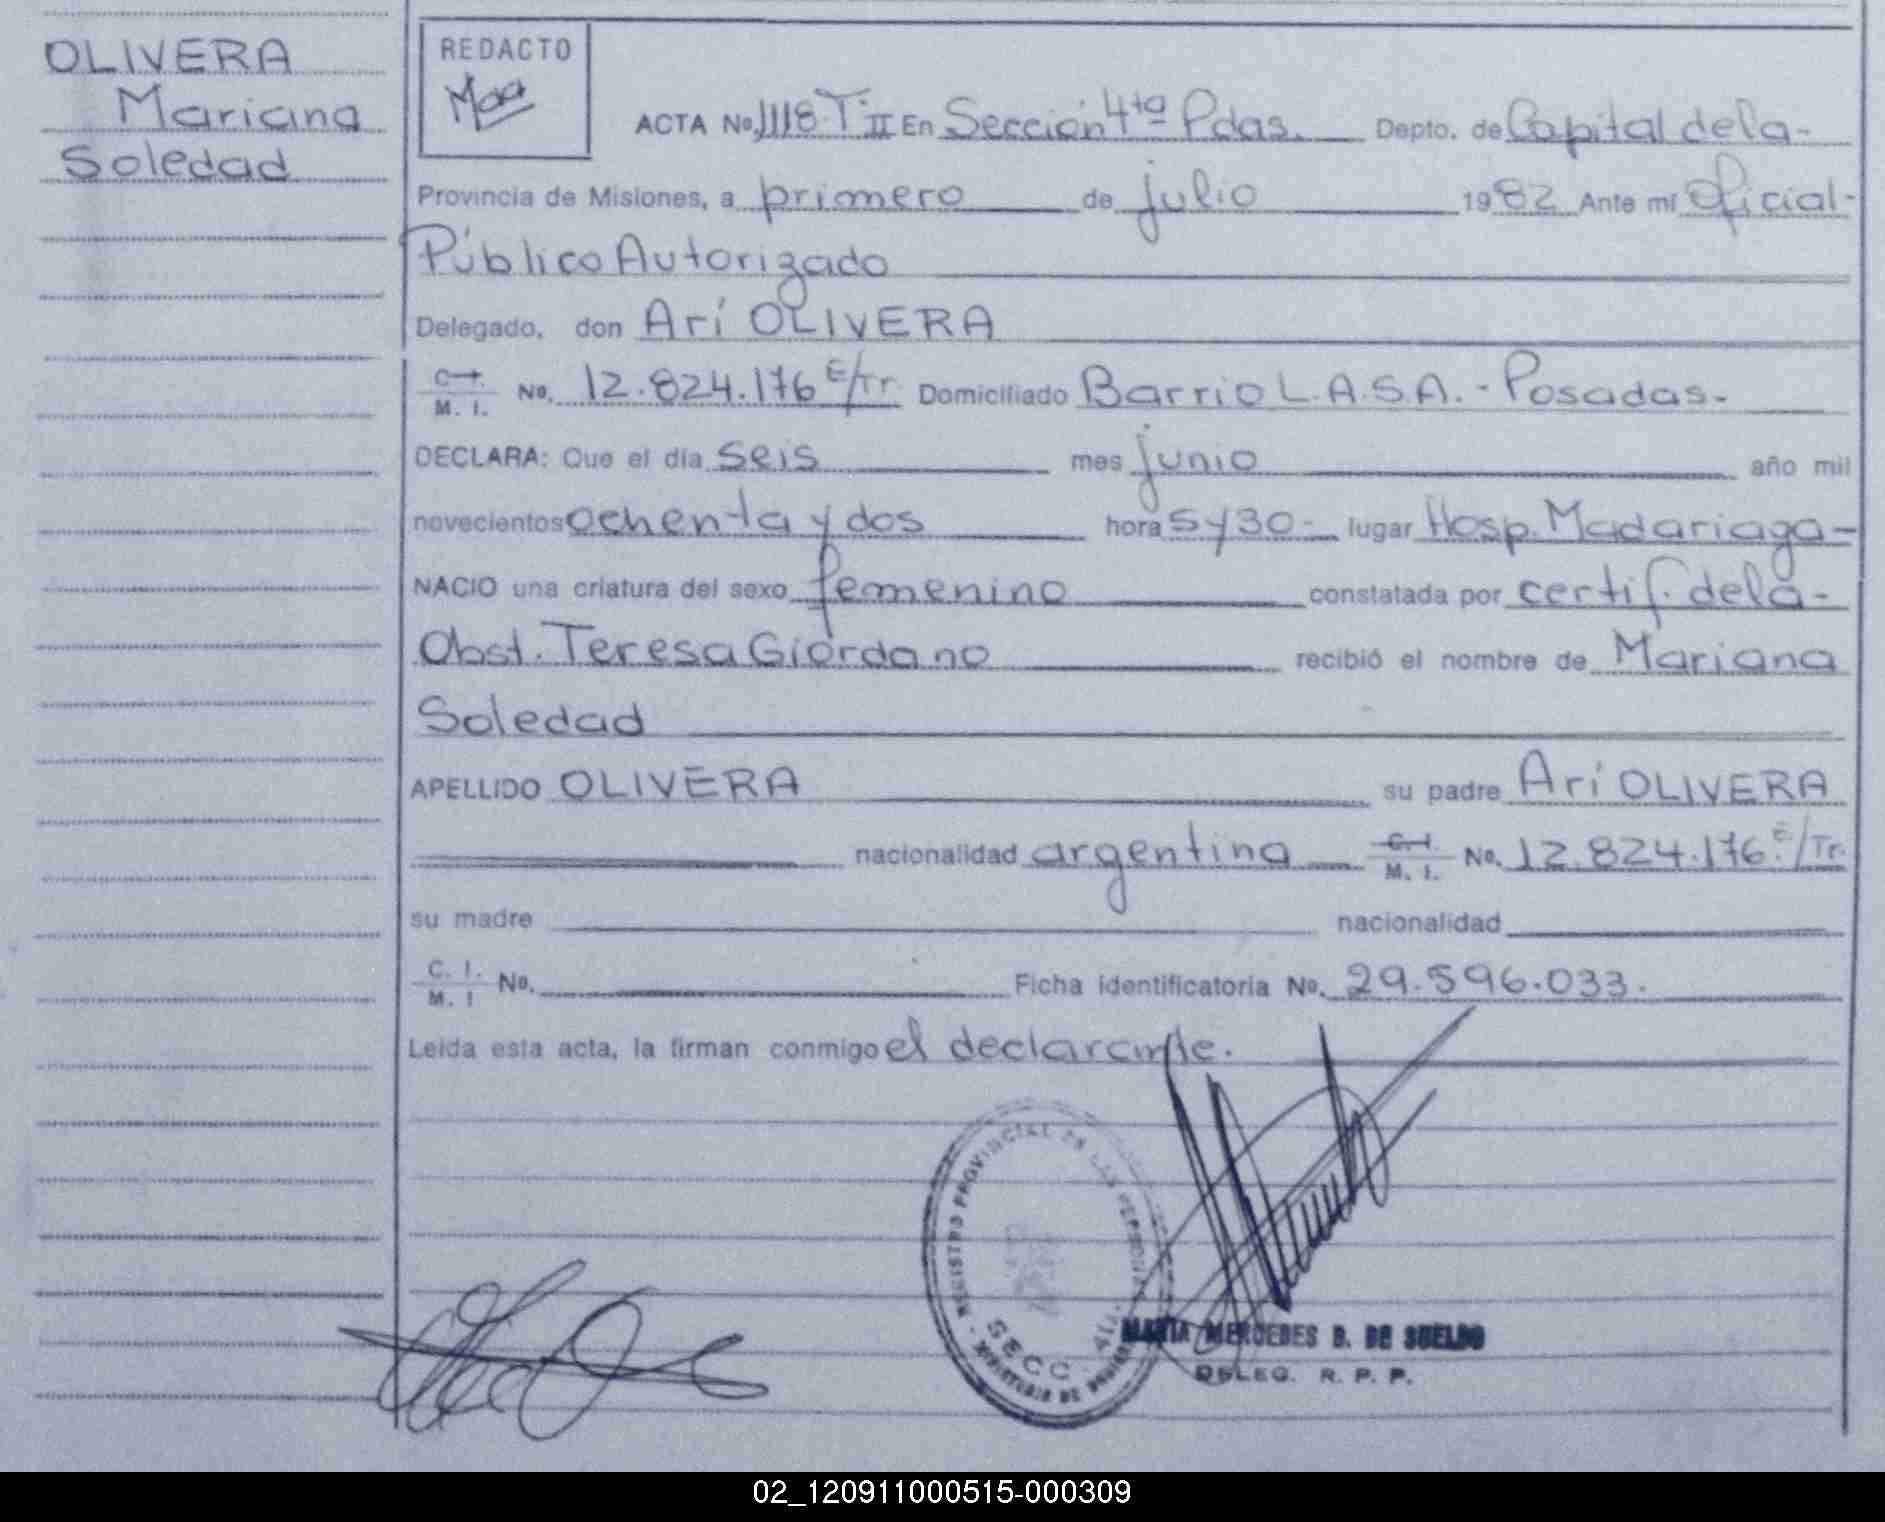 OLIVERA
Mariana
Soledad
REDACTO
ACTA No. 1118. T: II En Sección 4ta Pdas. Depto. de Capital de la-
Provincia de Misiones, a primero de julio 1982 Ante mí Oficial-
Público Autorizado
Delegado, don Arí OLIVERA
C. I.
M. I. No. 12.824.176 E/Tr. Domiciliado Barrio L.A.S.A. - Posadas.-
DECLARA: Que el día seis mes junio año mil
novecientos ochenta y dos hora 5 y 30- lugar Hosp. Madariaga-
NACIO una criatura del sexo femenino constatada por certif. de la-
Obst. Teresa Giordano recibió el nombre de Mariana
Soledad
APELLIDO OLIVERA su padre Arí OLIVERA
nacionalidad argentina C. I. M. I. No. 12.824.176 E/Tr.
su madre nacionalidad
C. I.
M. I No. Ficha identificatoria No. 29.596.033.
Leida esta acta, la firman conmigo el declarante.
REGISTRO PROVINCIAL DE LAS PERSONAS
SECC. 4ta.
MARIA MERCEDES B. DE SUELDO
DELEG. R. P. P.
02_120911000515-000309